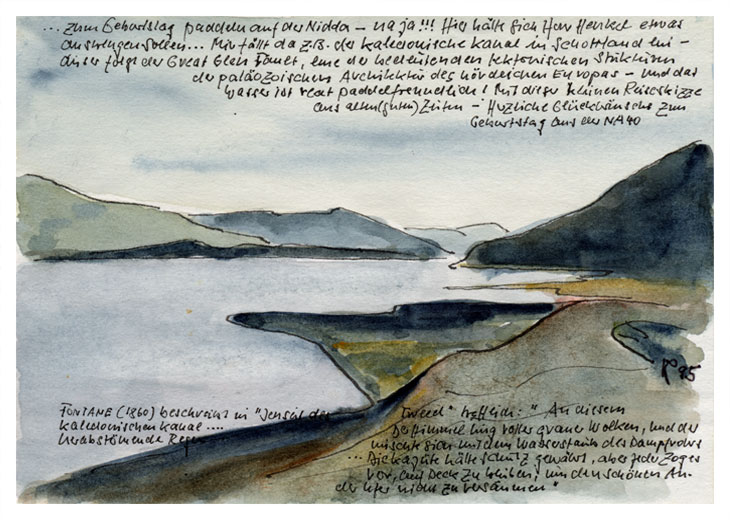 ... zum Geburtstag paddeln auf der Nidda – na ja!!! Hier hätte sich Herr Henkel etwas
anstrengen sollen... Mir fällt da z.B. der kaledonische Kanal in Schottland ein –
dieser folgt der Great Glen Fault, eine der bedeutenden tektonischen Strukturen
der paläozoischen Architektur des nördlichen Europas – und das
Wasser ist recht paddelfreundlich! Mit dieser kleinen Reiseskizze
aus alten (guten) Zeiten – Herzliche Glückwünsche zum
Geburtstag aus der NA40
95
FONTANE (1860) beschreibt in "Jenseit des Tweed" trefflich: "An diesem
kaledonischen Kanal .... der Himmel hing voller grauer Wolken, und der
herabströmende Regen mischte sich mit dem Wasserstaub des Dampfrohrs
... Die Kajüte hätte Schutz gewährt, aber jeder zog es
vor, auf Deck zu bleiben, um den schönen An-
der Ufer nicht zu versäumen"